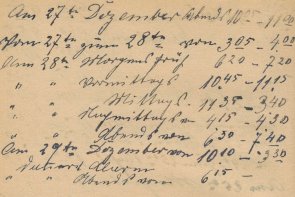 Am 27ten Dezember Abends 10.15 – 11.00
Vom 27ten zum 28ten von 3.05 – 4.00
Am 28ten Morgens früh 6.20 – 7.20
" " Vormittags 10.45 – 11.15
" " Mittags. 11.35 – 3.40
" " Nachmittags 4.15 – 4.30
" " Abends von 6.30 – 7.40
Am 29ten Dezember von 10.10 – 3.30
dauers Alarm
" Abends von 6.15 –